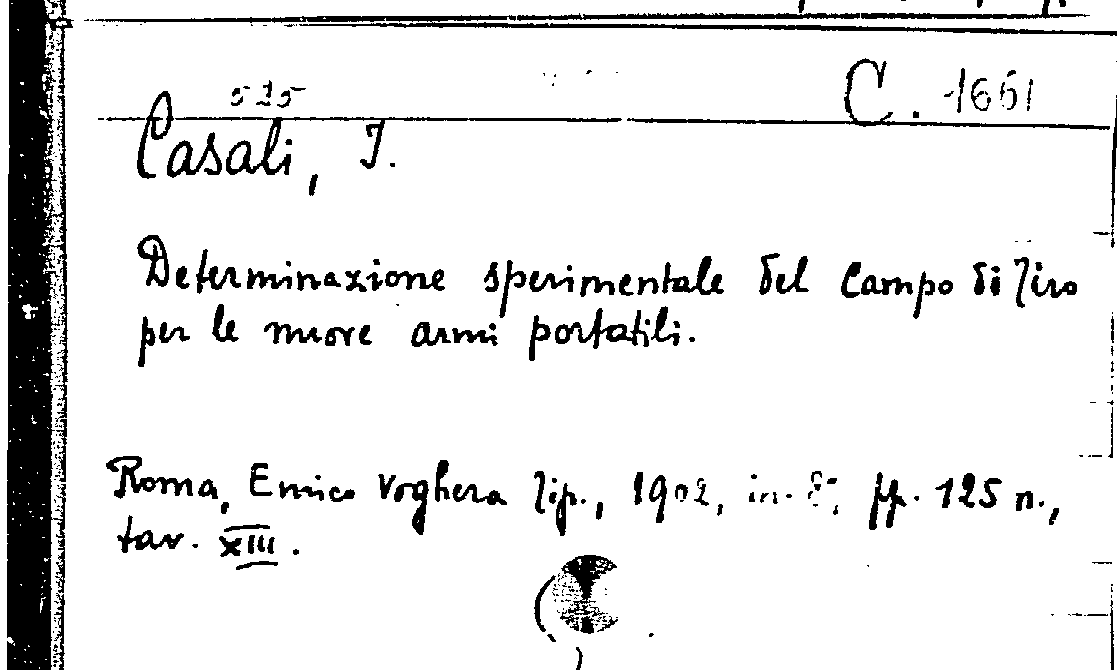 525
C. 1661
Casali, I.
Determinazione sperimentale del Campo di Tiro
per le nuove armi portatili.
Roma, Enrico Voghera Tip., 1902, in-8°, pp. 125 n.,
tav. XIII.